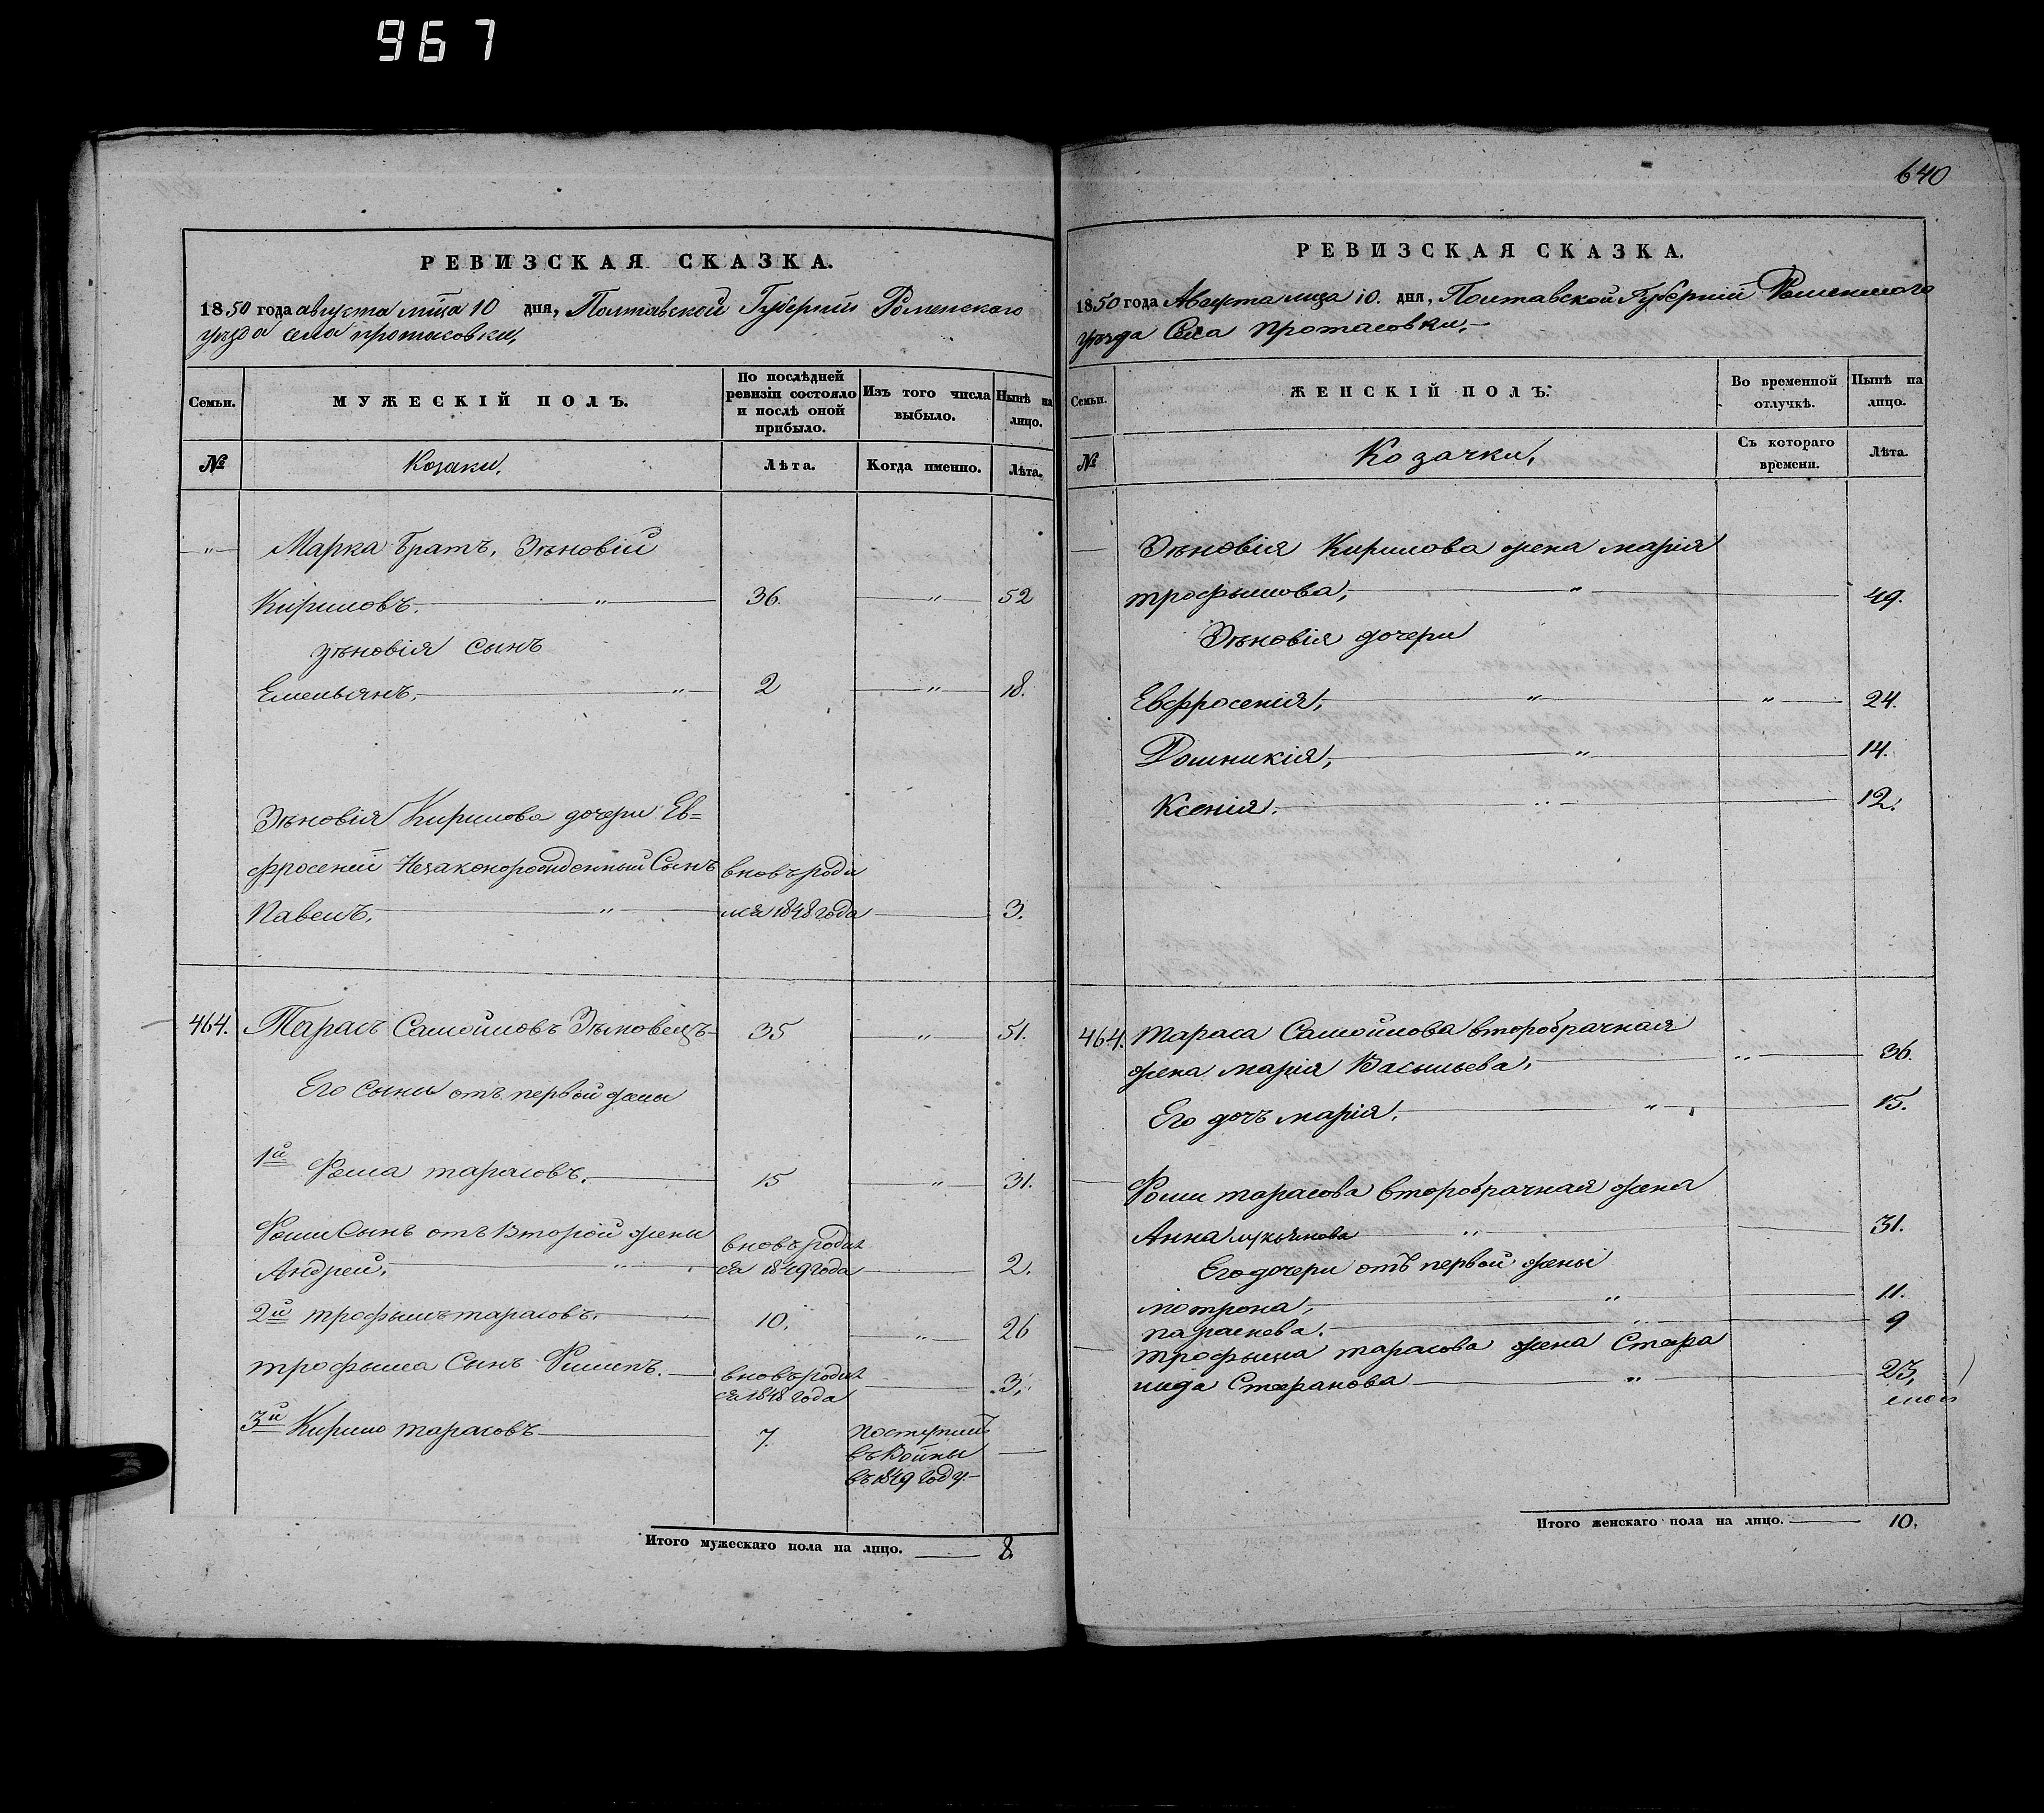 967
640
РЕВИЗСКАЯ СКАЗКА.
1850 года августа мца 10 дня, Полтавской Губерніи Роменскаго
уѣзда села протасовки,
Семьи.
МУЖЕСКІЙ ПОЛЪ.
По послѣдней ревизіи состояло и послѣ оной прибыло.
Изъ того числа выбыло.
Нынѣ на лицо.
№
Козаки,
Лѣта.
Когда именно.
Лѣта.
Марка братъ, Зѣновій
Кириловъ. 36. 52
зѣновія сынъ
Емельянъ. 2 18.
Зѣновія Кирилова дочери Ев=
фросеніи Незаконорожденный Сынъ вновь роди
Павелъ. лся 1848 года 3.
464. Тарасъ Самойловъ 35 51.
Его сыны отъ первой жены
1й Фома тарасовъ. 15 31.
Фомы Сынъ отъ Второй жены вновь родил
Андрей. ся 1849 года 2.
2й трофымъ тарасовъ. 10. 26
трофыма Сынъ Филипъ. вновь родил 3.
ся 1848 года
3й Кирило тарасовъ 7.
въ 1849 году.
Итого мужескаго пола на лицо. 8.
РЕВИЗСКАЯ СКАЗКА.
1850 года Августа мца 10. дня, Полтавской Губерніи Роменскаго
уѣзда Села протасовки,
Семьи.
ЖЕНСКІЙ ПОЛЪ.
Во временной отлучкѣ.
Нынѣ на лицо.
№
Козачки,
Съ котораго времени.
Лѣта.
Зѣновія Кирилова жена марія
трофымова, 49.
Зѣновія дочери
Евфросенія, 24.
Домникія, 14.
Ксенія. 12.
464. тараса Самойлова второбрачная
жена марія Васыльева, 36.
Его дочъ марія. 15.
Фомы тарасова второбрачная жена
Анна 31.
Его дочери отъ первой жены
мотрона, 11.
параскева. 9
трофыма тарасова жена Стефа
нида Стефанова 23,
Итого женскаго пола на лицо. 10.